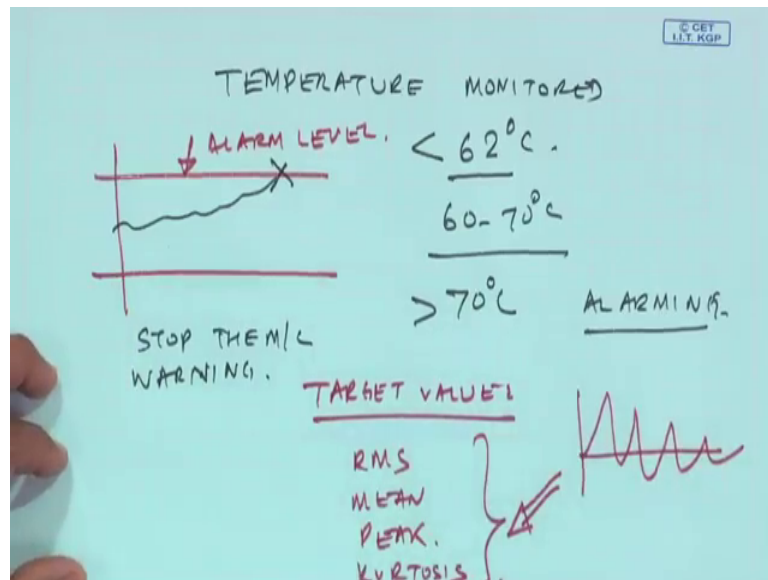 © CET
I.I.T. KGP
TEMPERATURE MONITORED
ALARM LEVEL.
< 62°C.
60-70°C
> 70°C ALARMING.
STOP THE M/C
WARNING.
TARGET VALUES
RMS
MEAN
PEAK.
KURTOSIS